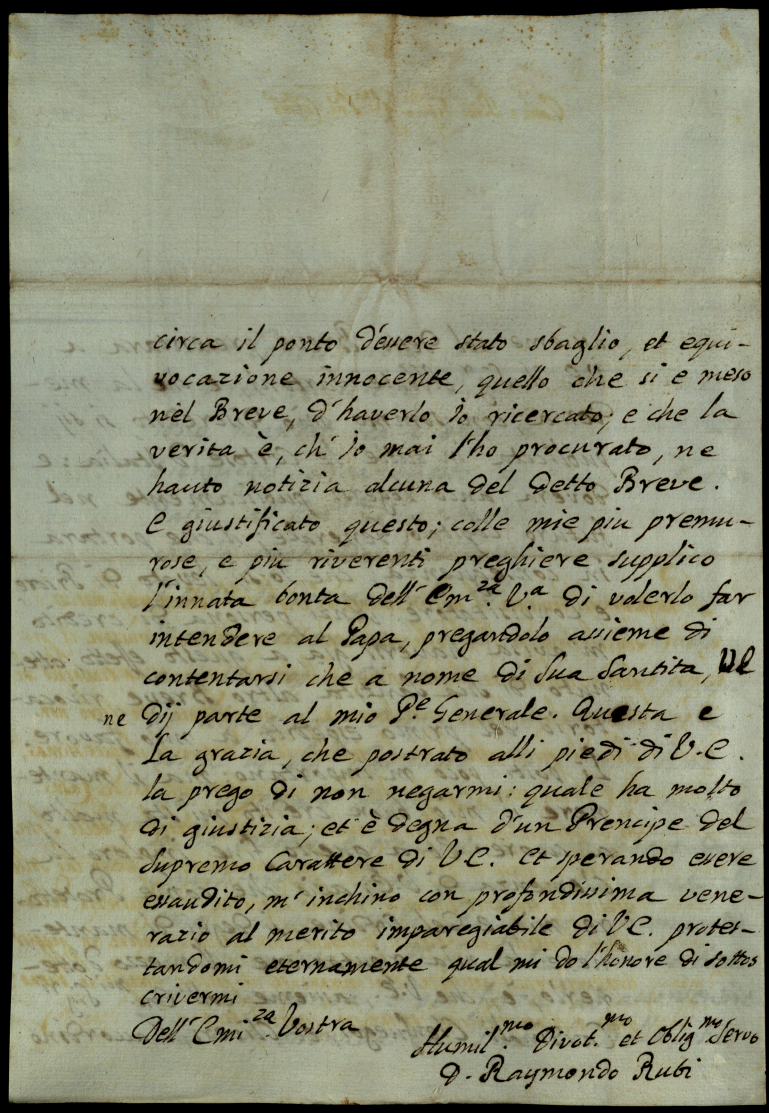 circa il ponto d'essere stato sbaglio, et equi-
vocazione innocente, quello che si e meso
nèl Breve, d'haverlo Io ricercato; e che la
verita è, ch' Io mai l'ho procurato, ne
hauto notizia alcuna del detto Breve.
E giustificato questo; colle mie piu premu-
rose, e piu riverenti preghiere supplico
l'innata bonta dell' Em.za V.a di volerlo far
intendere al Papa, pregandolo assieme di
contentarsi che a nome di Sua Santita, VE
ne dij parte al mio P.e Generale. Questa e
la grazia, che postrato alli piedi di V.E.
la prego di non negarmi: quale ha molto
di giustizia; et è degna d'un Prencipe del
supremo Carattere di VE. Et sperando essere
essaudito, m' inchino con profondissima vene-
razio al merito imparegiabile di VE. protes-
tandomi eternamente qual mi do l'honore di sottos
crivermi
Dell' Emi.za Vostra
Humil.mo Divot.mo et Oblig.mo Servo
D. Raymondo Rubi